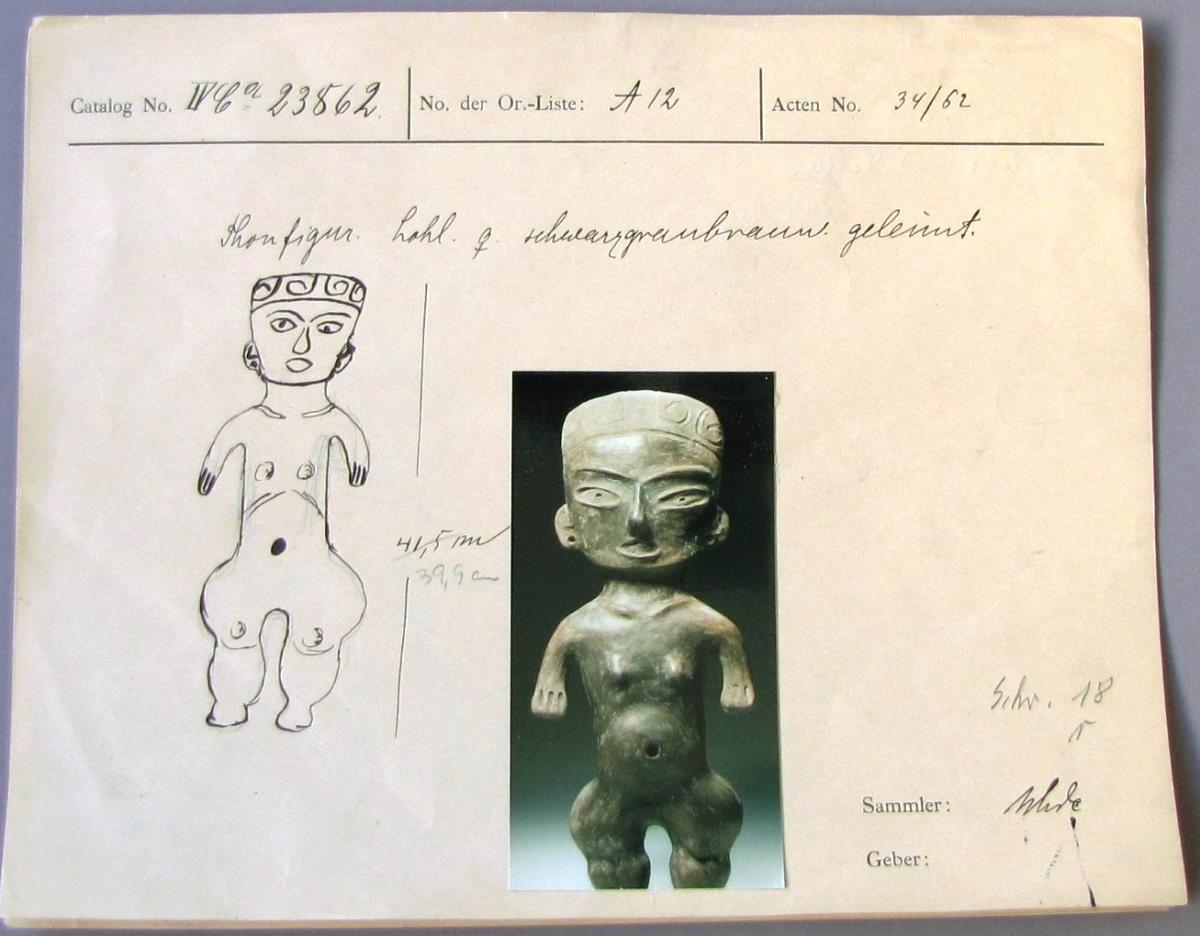 Catalog No. IV Ca 23562. No. der Or.-Liste: A 12 Acten No. 34/62
Thonfigur. hohl. ♀. schwarzgraubraun. geleimt.
41,5 cm
39,9 cm
Schr. 18
Sammler: Uhde
Geber: